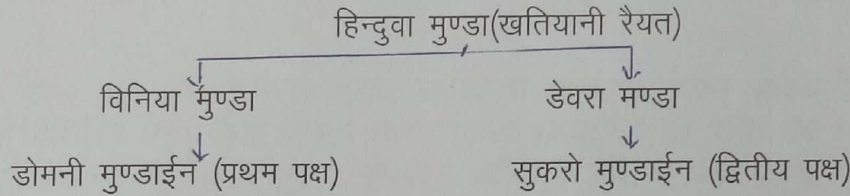 हिन्दुवा मुण्डा(खतियानी रैयत)
विनिया मुण्डा डेवरा मण्डा
डोमनी मुण्डाईन (प्रथम पक्ष) सुकरो मुण्डाईन (द्वितीय पक्ष)